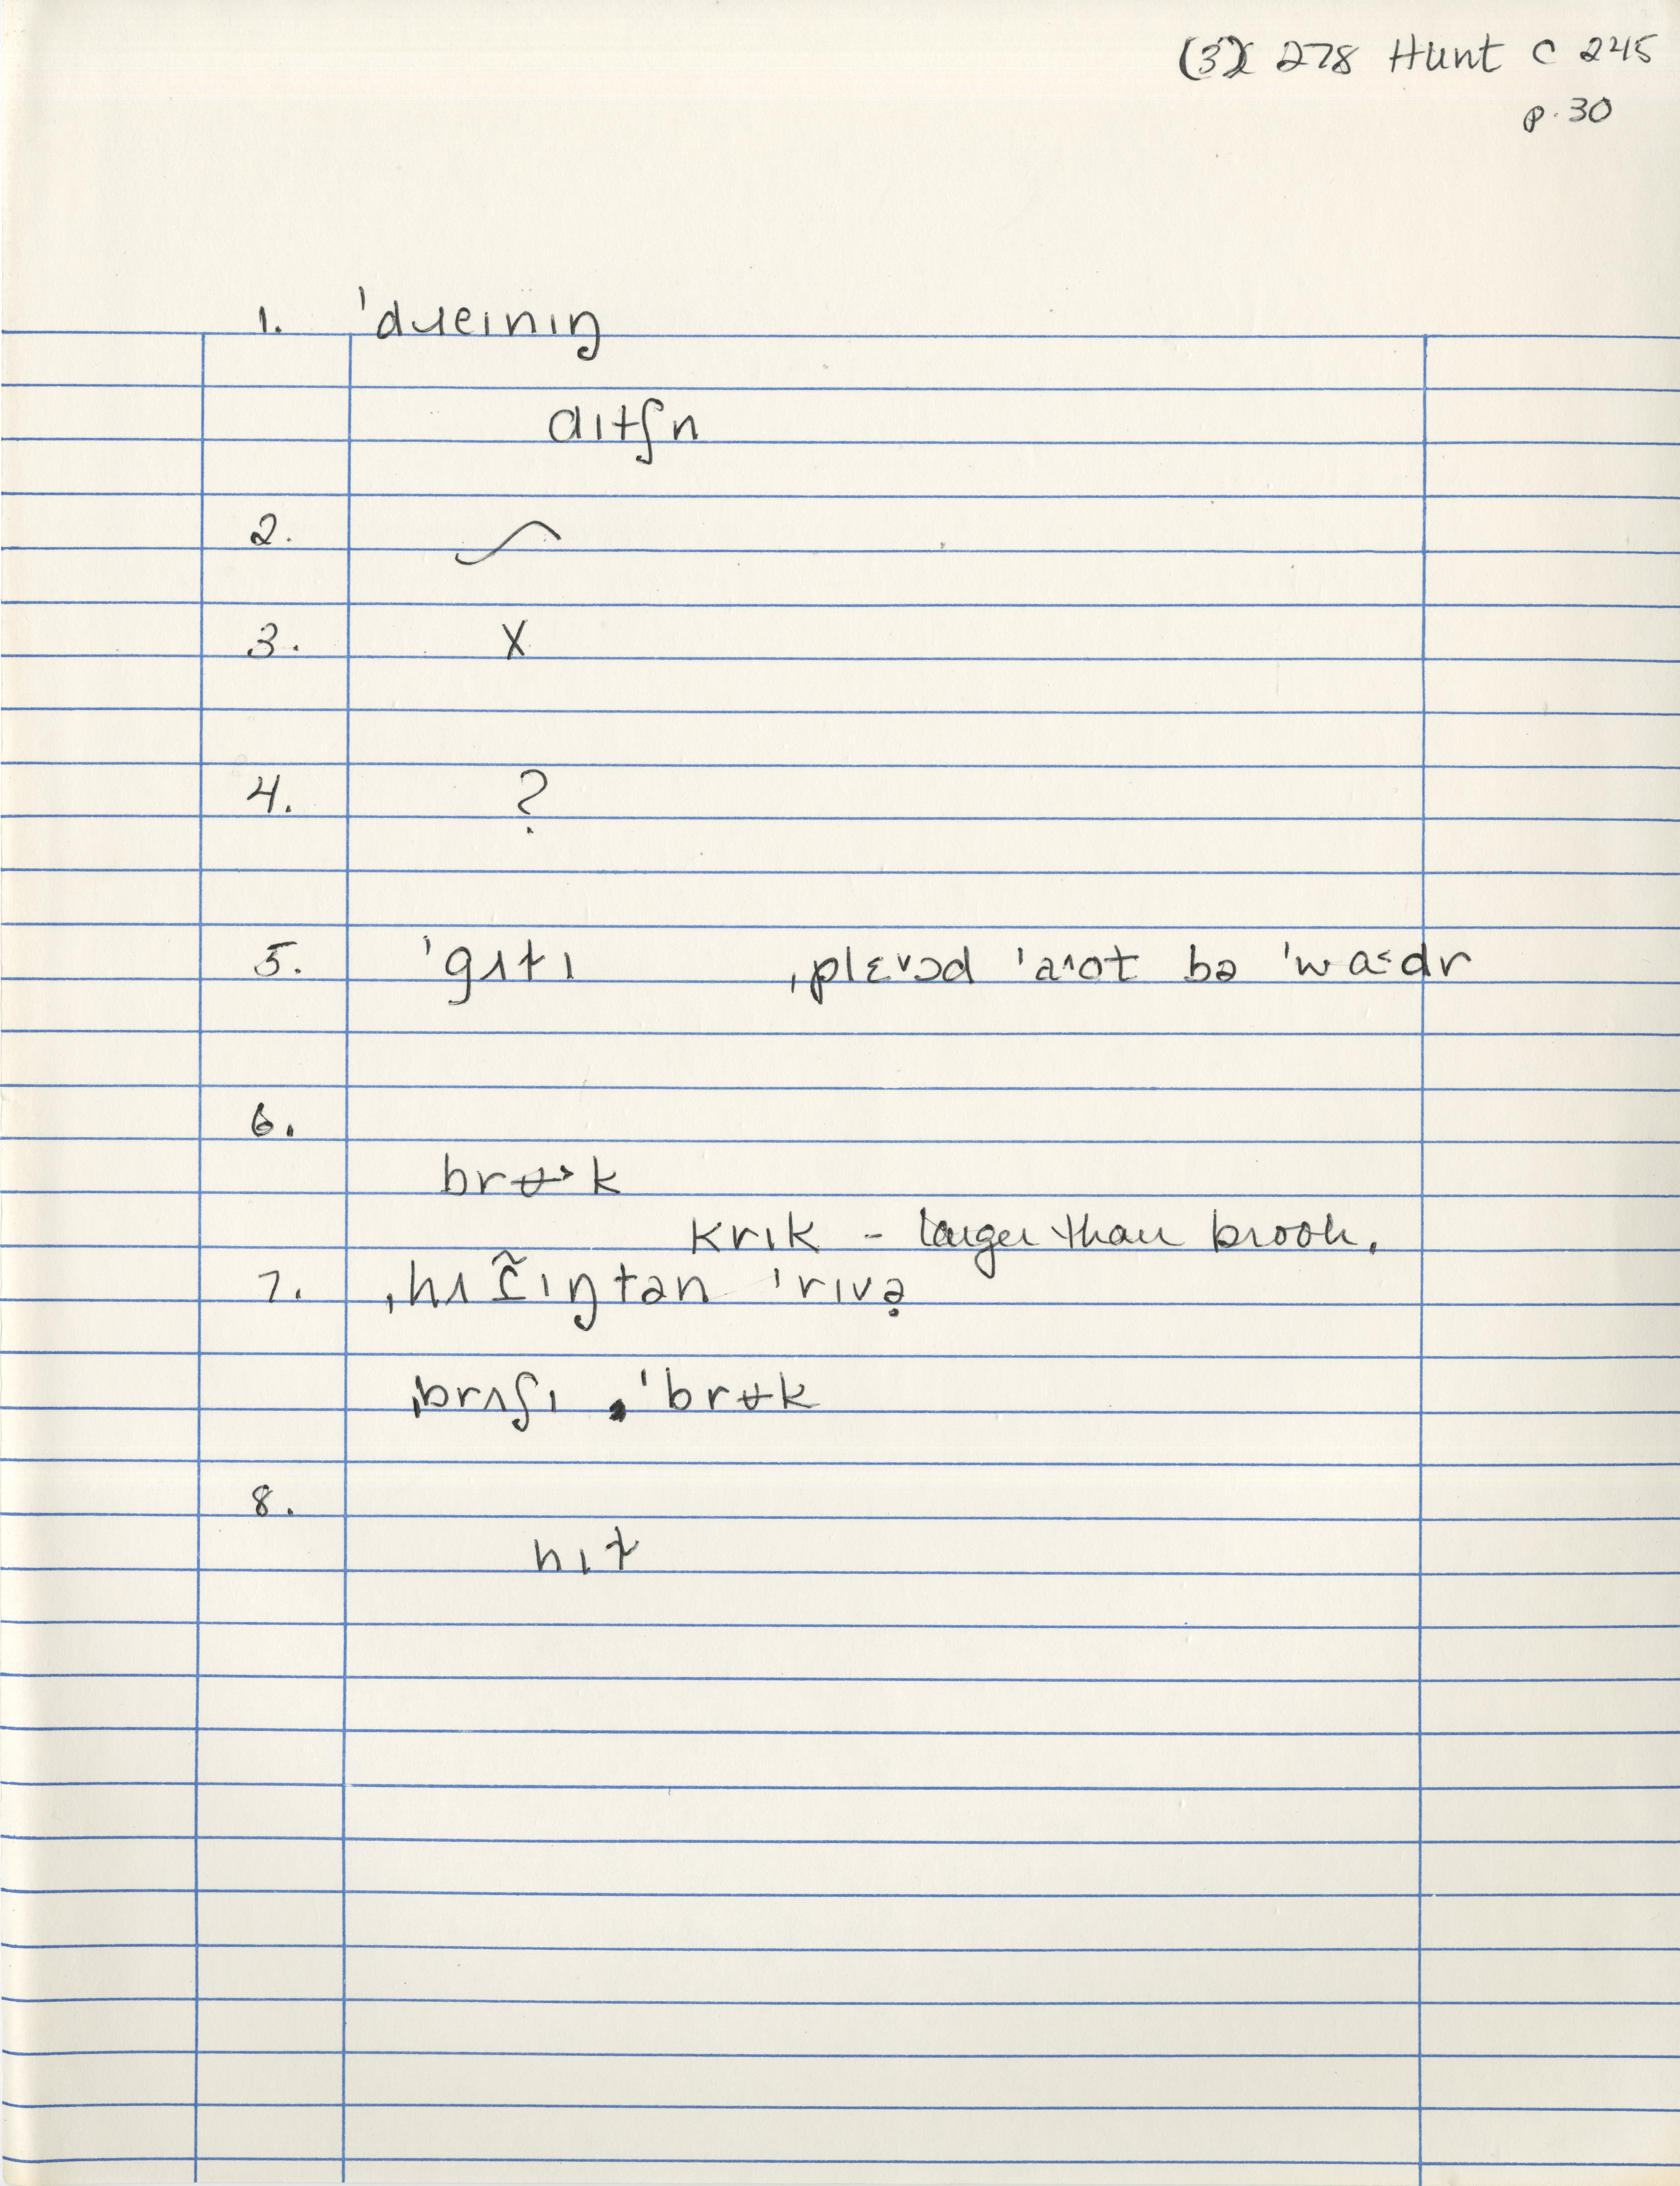 (3) 278 Hunt C 245
p. 30
1. ˈdɹeınıŋ
dıtʃn
2.
3. X
4. ?
5. ˈgʌtı ˌplɛᵛɔd ˈaʌot bə ˈwaːdr
6.
brʉ˃k
krık – larger than brook.
7. ıŋtən ˈrıvə̣
ˌbrʌʃı ˈbrʉk
8.
hıt